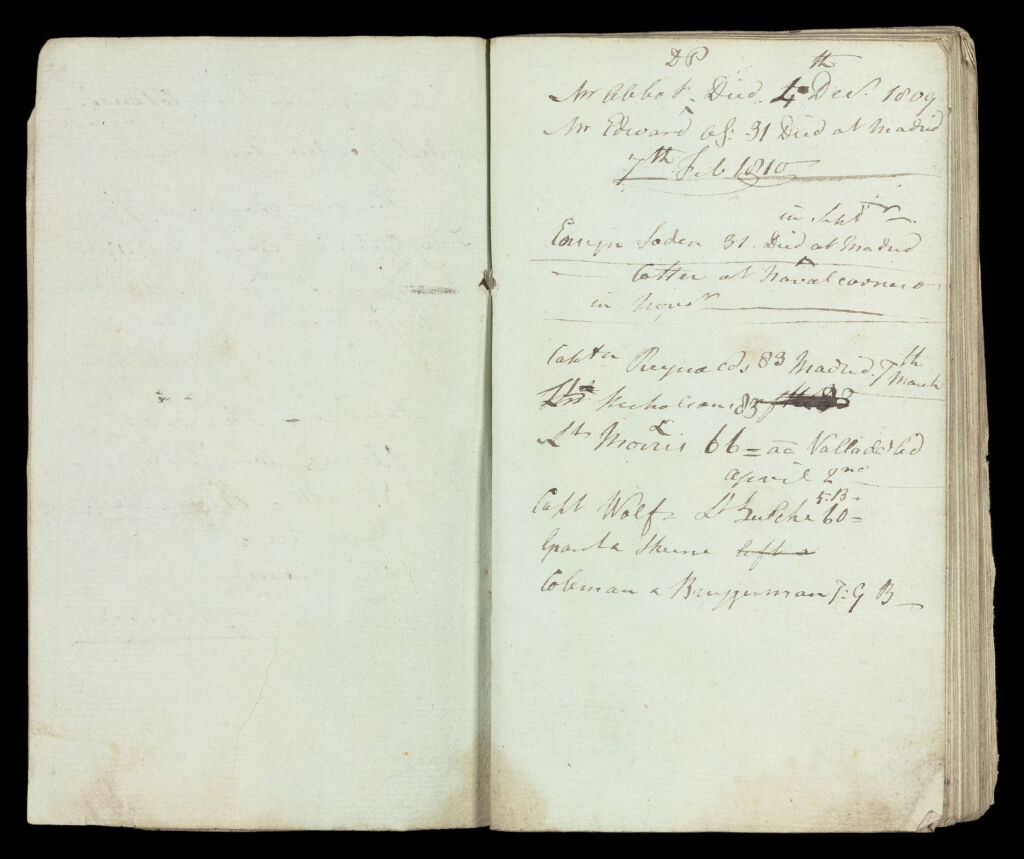 DP
Mr Abbot. Died. 4th Decr. 1809
Mr Edward 31 Died at Madrid
7th Feb 1810
in Sept r
Ensign 31. Died at Madrid
Cotter at Navalcarnero
in Novr
Captn Reynolds 83 Madrid. 7th March
Nicholson 83
Lt Morris 66 = at Valladolid
april 2nd
5: B
Capt Wolf & Lt 60 =
Grant & Skene
Coleman & Bruggeman 7: G B